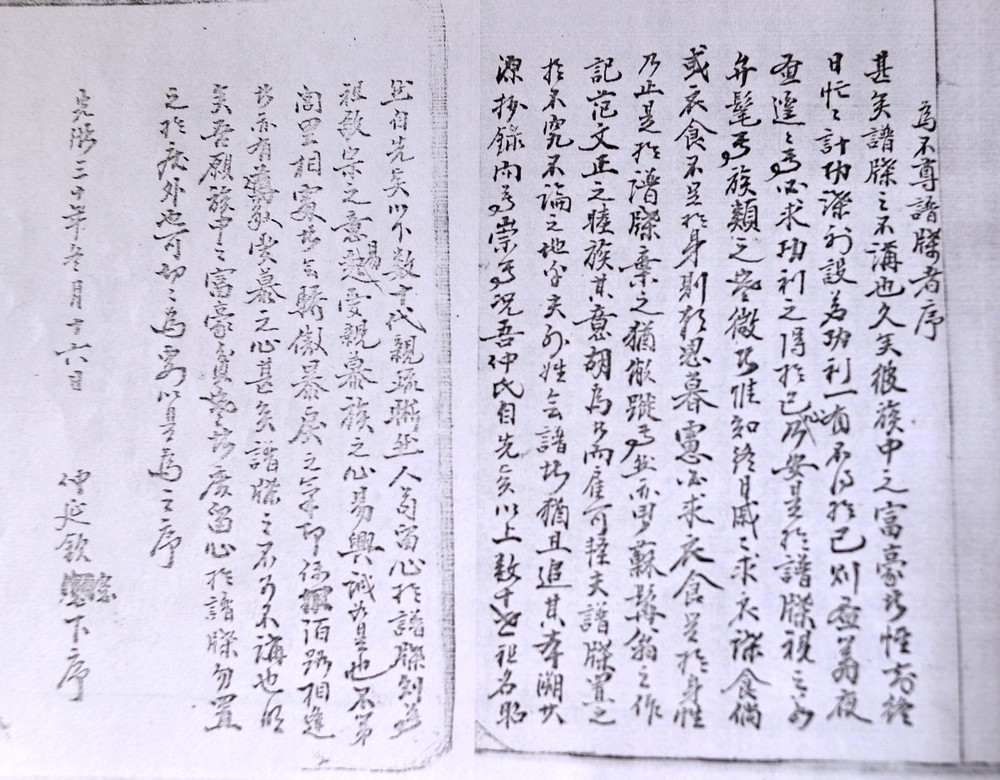 為不尊譜牒者序
甚矣譜牒之不講也久矣彼族中之富豪者惟知終
日忙忙計功深利設為功利一有不得於己則晝夜
遑遑焉必求功利之得於己心安且於譜牒視之如
弁髦焉族類之微者惟知終日戚戚求衣謀食倘
或衣食不足於身則朝思暮慮必求衣食足於身
乃止是於譜牒棄之猶敝蹤焉然亦思蘇翁之作
記范文正之睦族其意胡為者而崖可捶夫譜牒置之
於不究不論之地乎夫外姓會譜者猶且追其本溯其
源抄錄而焉崇焉況吾仲氏自先矣以上數十世祖名昭
然自先矣以下數十代親疏晰然人苟留心於譜牒則尊
祖敬宗之意愈受親慕族之心易興誠若是也不第
間里相宴者無驕傲暴戾之氣即係陌路相逢
者亦有恭敬愛慕之心甚矣譜牒之不可不講也明
矣吾願族中之富豪貧者皆宜留心於譜牒勿置
之於度外也可切切為要以是為之序
光緒三十年冬月十六日
仲延欽 下序